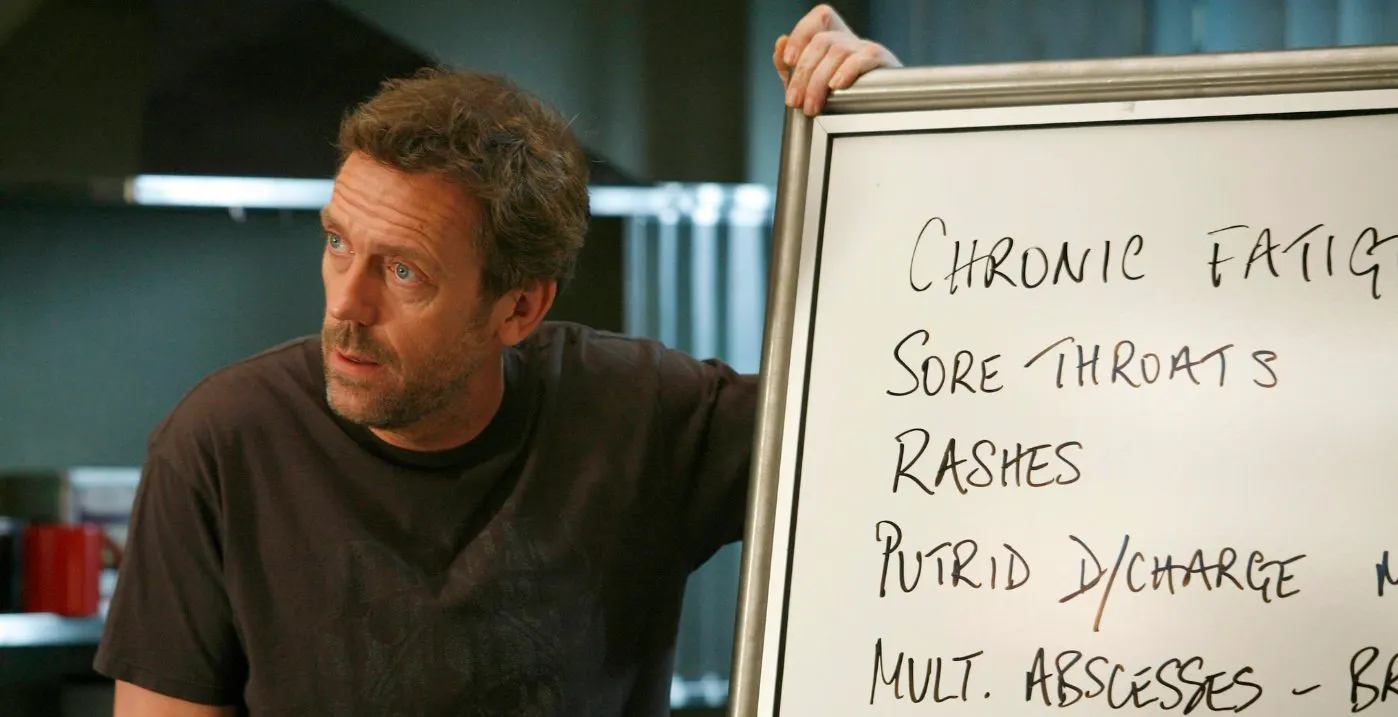 CHRONIC FATIG
SORE THROATS
RASHES
PUTRID D/CHARGE
MULT. ABSCESSES - BR